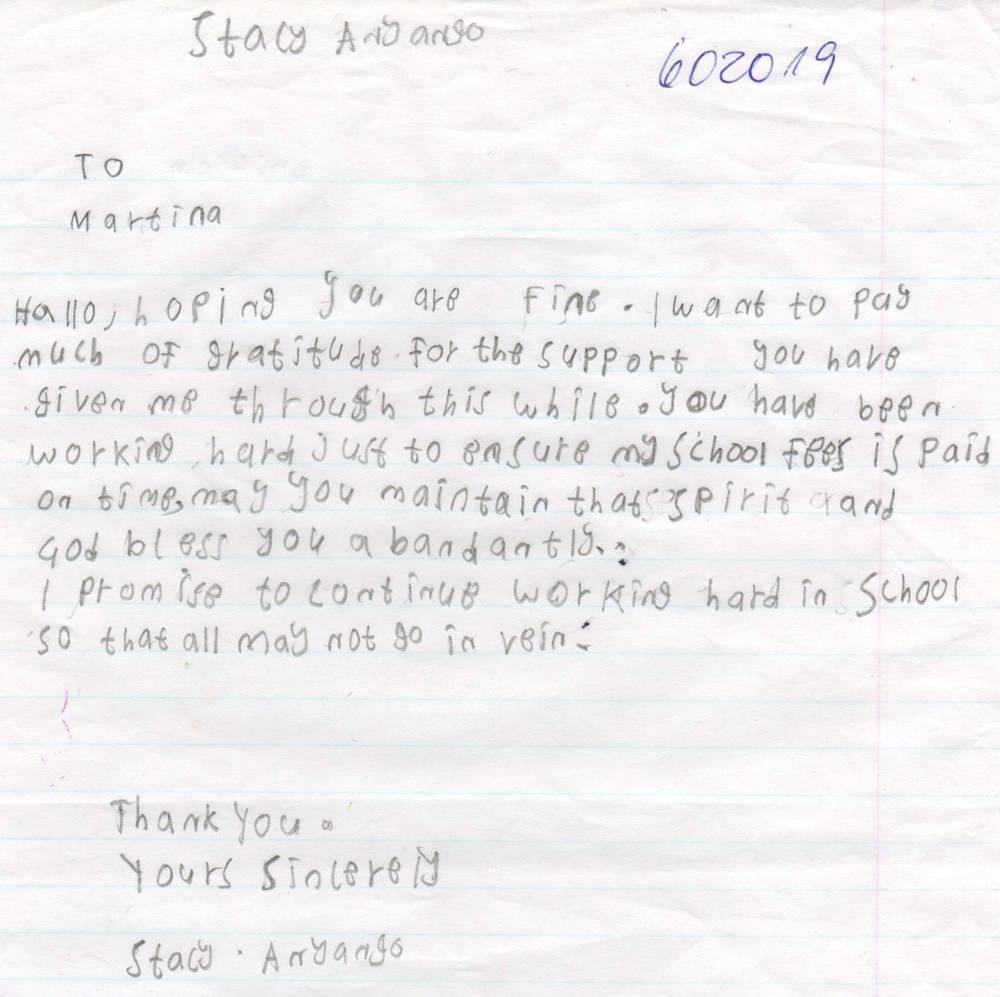 Stacy Anyango
602019
To
Martina
Hallo, hoping you are fine. I want to pay
much of gratitude for the support you have
given me through this while. you have been
working hard just to ensure my school fees is paid
on time, may you maintain that spirit and
God bless you abandantly.
I promise to continue working hard in school
so that all may not go in vein.
Thank you.
Yours Sincerely
Stacy. Anyango